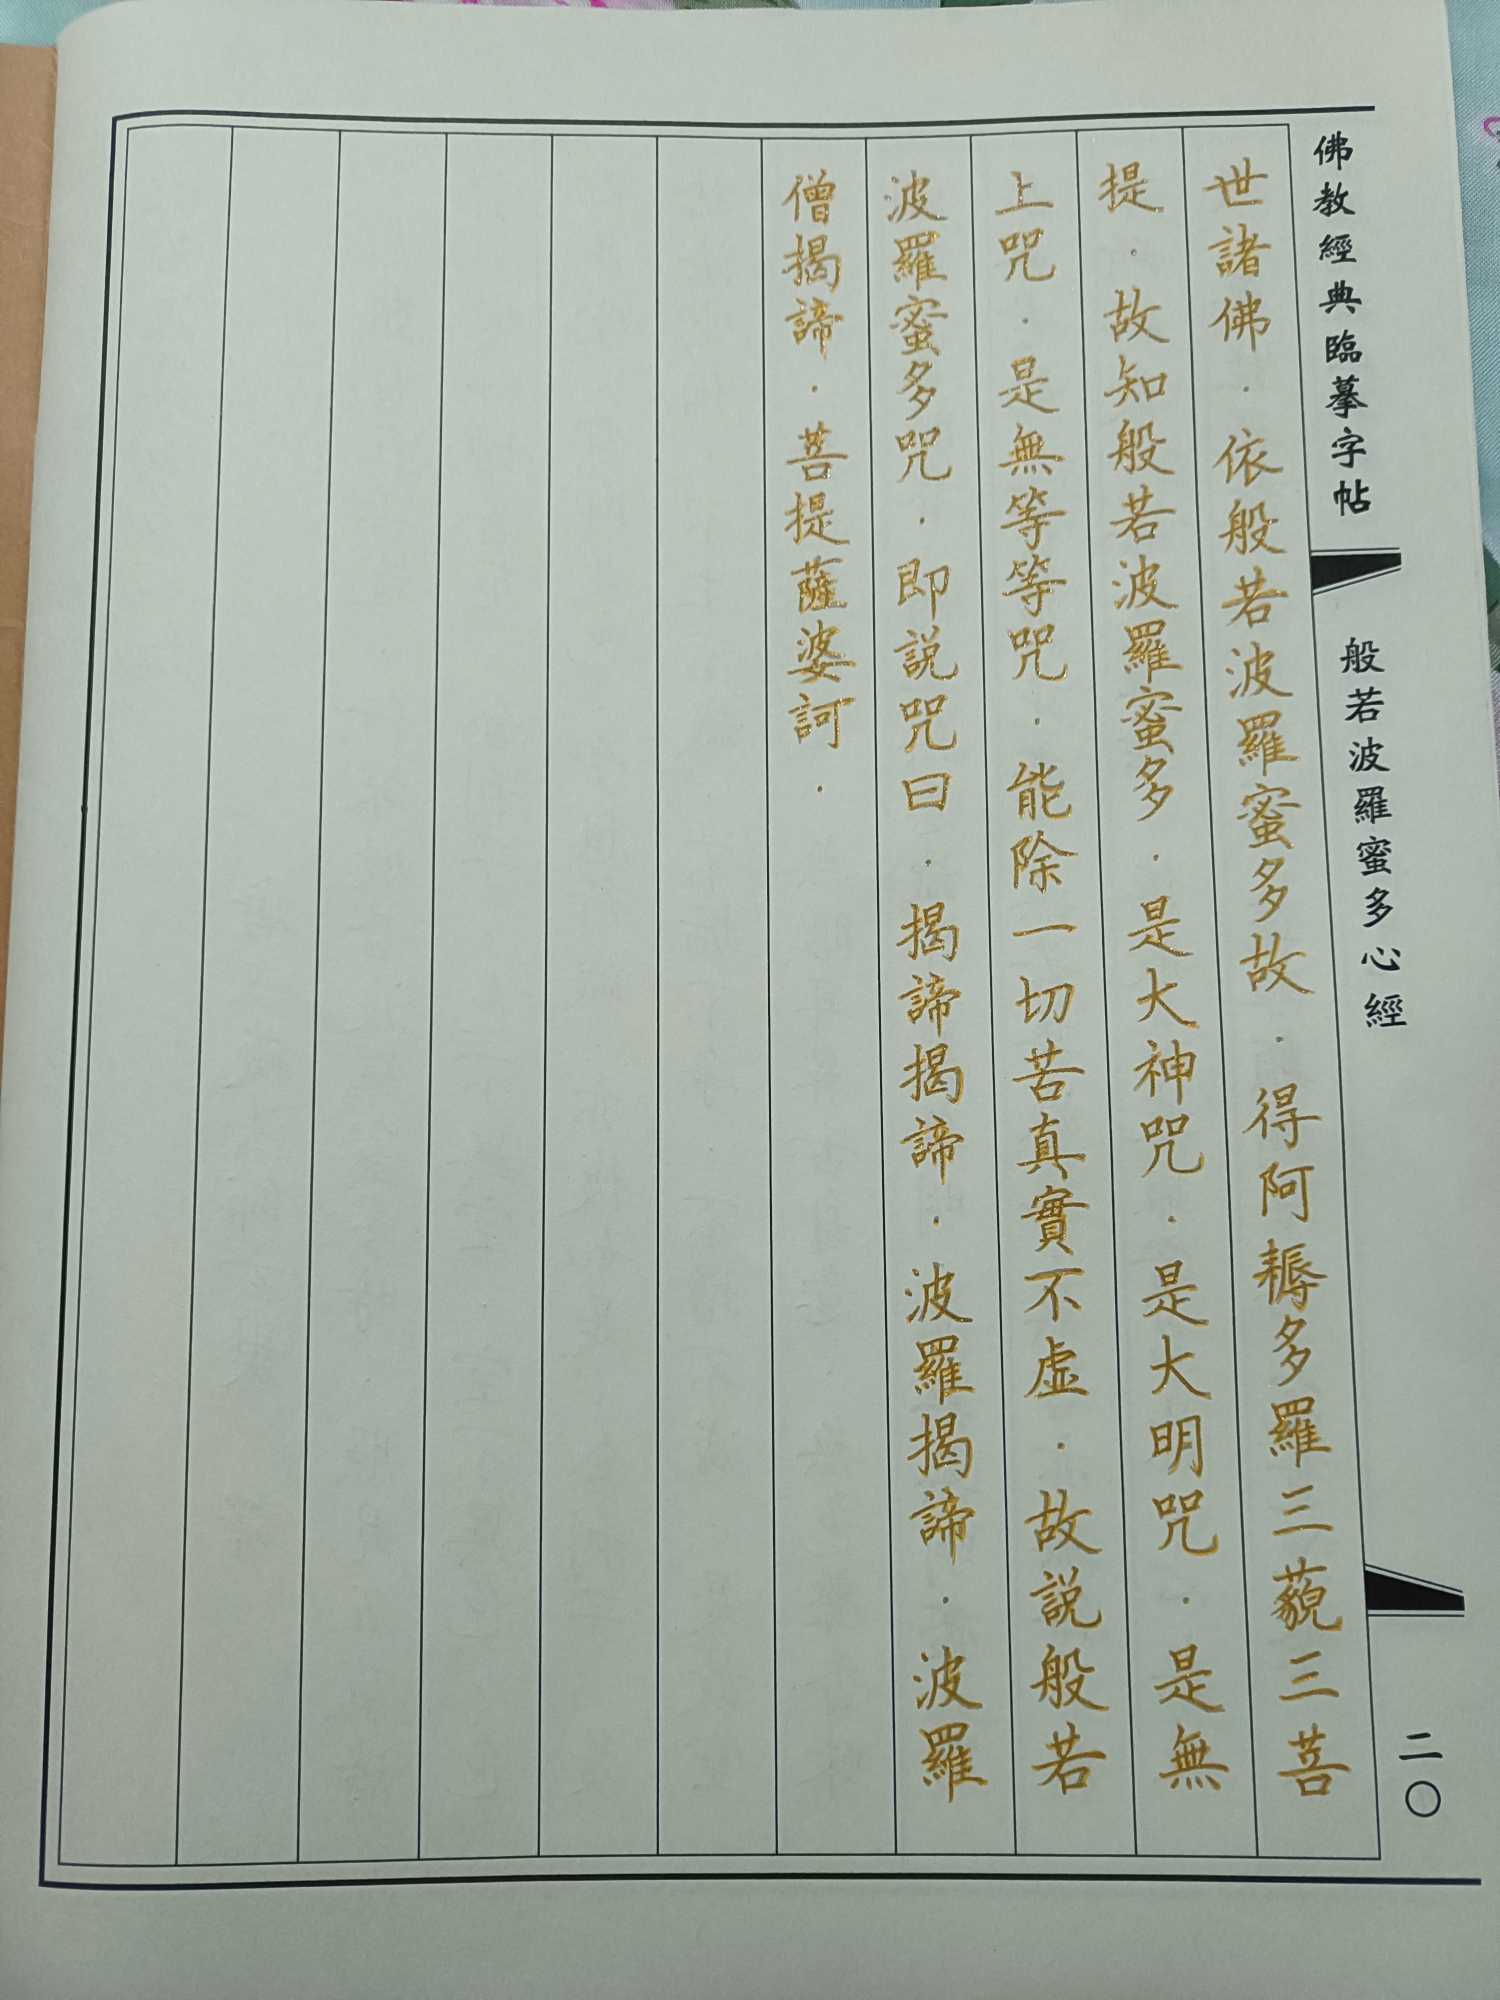 佛教經典臨摹字帖
般若波羅蜜多心經
二〇
世諸佛．依般若波羅蜜多故．得阿耨多羅三藐三菩
提．故知般若波羅蜜多．是大神咒．是大明咒．是無
上咒．是無等等咒．能除一切苦真實不虛．故說般若
波羅蜜多咒．即說咒曰．揭諦揭諦．波羅揭諦．波羅
僧揭諦．菩提薩婆訶．